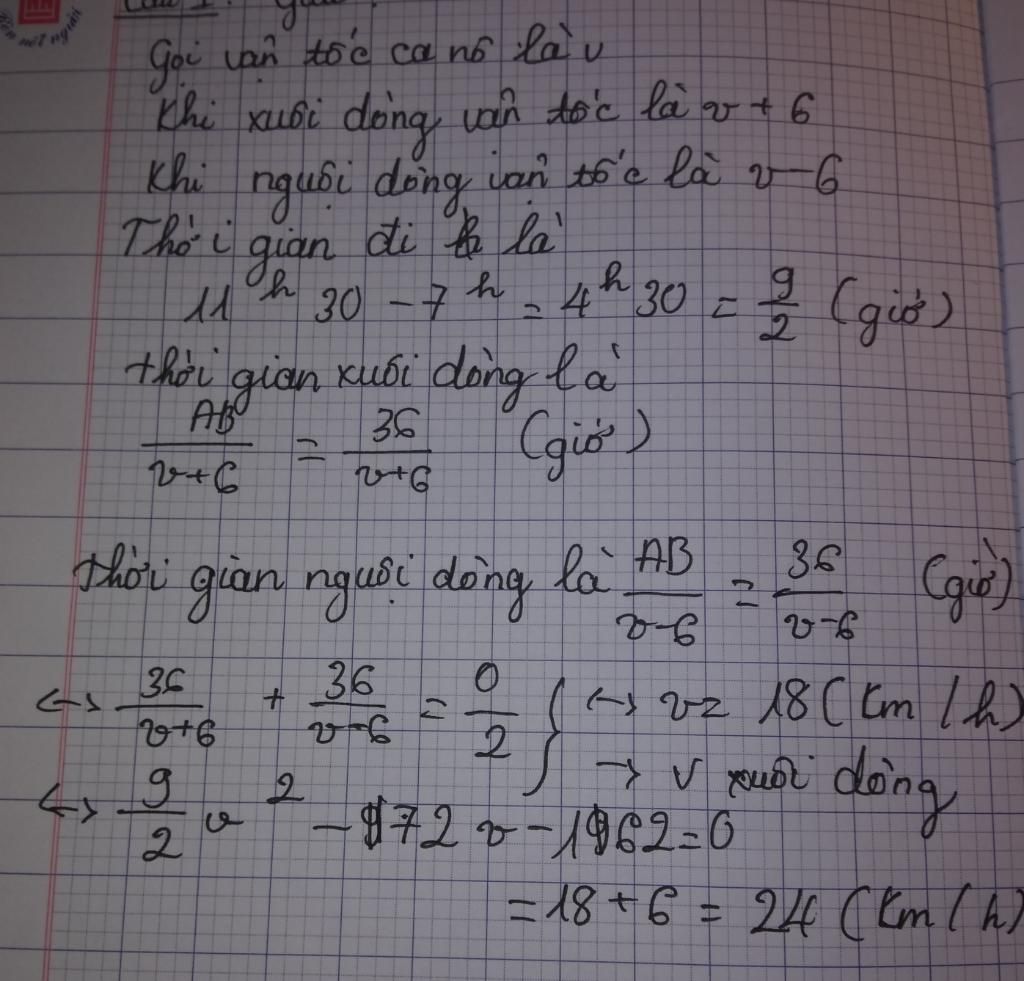 Gọi vận tốc ca nô là v
Khi xuôi dòng vận tốc là v + 6
Khi nguôi dòng vận tốc là v - 6
Thời gian đi là
11 h 30 - 7 h = 4 h 30 = 9/2 (giờ)
thời gian xuôi dòng là
AB/(v+6) = 36/(v+6) (giờ)
thời gian nguội dòng là AB/(v-6) = 36/(v-6) (giờ)
<-> 36/(v+6) + 36/(v-6) = 0/2 } <-> v = 18 (Km/h)
-> v xuôi dòng
<-> 9/2 v² - 72 v - 162 = 0
= 18 + 6 = 24 (Km/h)